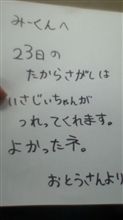 みーくんへ
23日の
たからさがしは
いさじいちゃんが
つれってくれます。
よかったネ。
おとうさんより